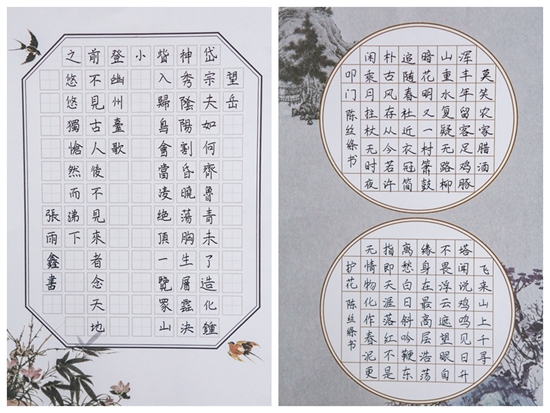 望岳
岱宗夫如何齊魯青未了造化鍾
神秀陰陽割昏曉蕩胸生層雲決
眥入歸鳥會當凌絕頂一覽眾山
小
登幽州臺歌
前不見古人後不見來者念天地
之悠悠獨愴然而涕下
張雨鑫書
莫笑农家腊酒
浑丰年留客足鸡豚
山重水复疑无路柳
暗花明又一村箫鼓
追随春社近衣冠简
朴古风存从今若许
闲乘月拄杖无时夜
叩门 陈丝絛书
飞来山上千寻
塔闻说鸡鸣见日升
不畏浮云遮望眼自
缘身在最高层浩荡
离愁白日斜吟鞭东
指即天涯落红不是
无情物化作春泥更
护花 陈丝絛书